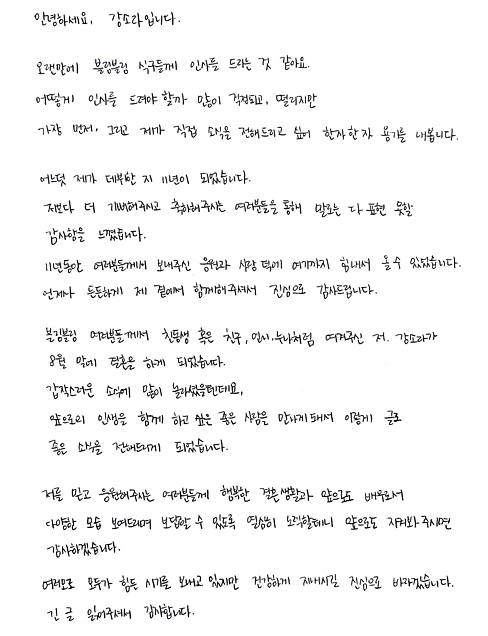 안녕하세요, 강소라입니다.
오랜만에 블링블링 식구들께 인사를 드리는 것 같아요.
어떻게 인사를 드려야 할까 많이 걱정되고, 떨리지만
가장 먼저, 그리고 제가 직접 소식을 전해드리고 싶어 한자 한자 용기를 내봅니다.
어느덧 제가 데뷔한 지 11년이 되었습니다.
저보다 더 기뻐해주시고 축하해주시는 여러분들을 통해 말로는 다 표현 못할
감사함을 느꼈습니다.
11년동안 여러분들께서 보내주신 응원과 사랑 덕에 여기까지 힘내서 올 수 있었습니다.
언제나 든든하게 제 곁에서 함께해주셔서 진심으로 감사드립니다.
블링블링 여러분들께서 친동생 혹은 친구, 언니·누나처럼 여겨주신 저. 강소라가
8월 말에 결혼을 하게 되었습니다.
갑작스러운 소식에 많이 놀라셨을텐데요,
앞으로의 인생을 함께 하고 싶은 좋은 사람을 만나게 돼서 이렇게 글로
좋은 소식을 전해드리게 되었습니다.
저를 믿고 응원해주시는 여러분들께 행복한 결혼생활과 앞으로도 배우로서
다양한 모습 보여드리며 보답할 수 있도록 열심히 노력할테니 앞으로도 지켜봐 주시면
감사하겠습니다.
여러모로 모두가 힘든 시기를 보내고 있지만 건강하게 지내시길 진심으로 바라겠습니다.
긴 글 읽어주셔서 감사합니다.